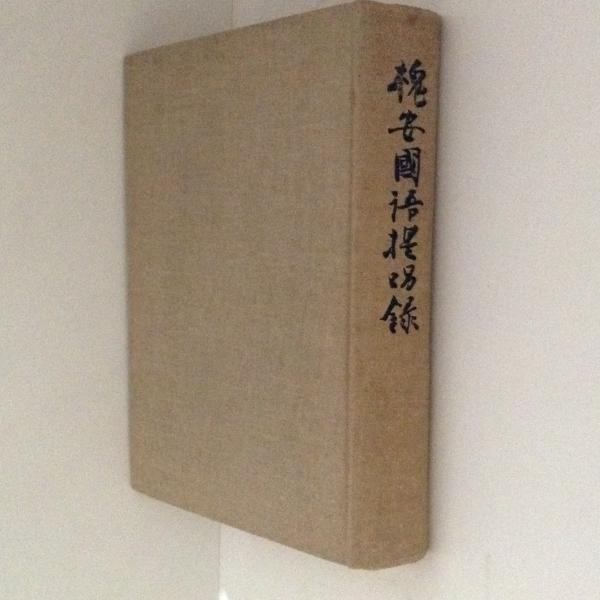 槐安國語提唱録